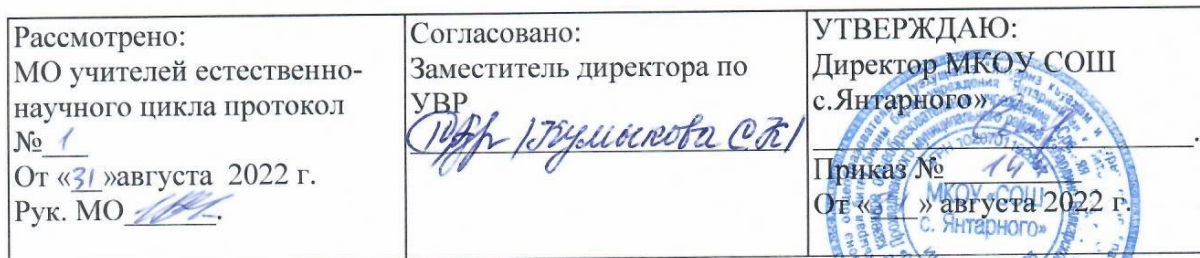 Рассмотрено:
МО учителей естественно-
научного цикла протокол
№ 1
От «31»августа 2022 г.
Рук. МО
Согласовано:
Заместитель директора по
УВР
/Кумыкова С.К/
УТВЕРЖДАЮ:
Директор МКОУ СОШ
с.Янтарного»
Приказ №
От « » августа 2022 г.
МКОУ «СОШ
с. Янтарного»